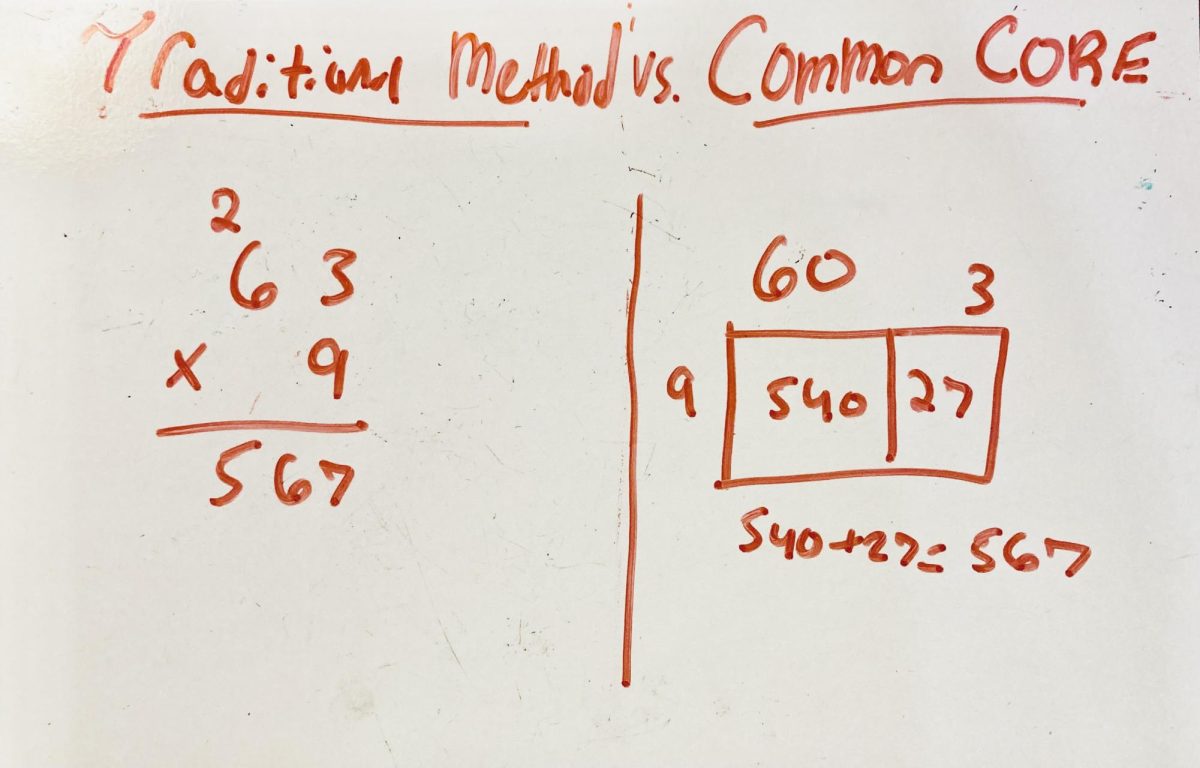 Traditional Method vs. Common CORE
2
63
x 9
567
60 3
9 540 27
540+27=567